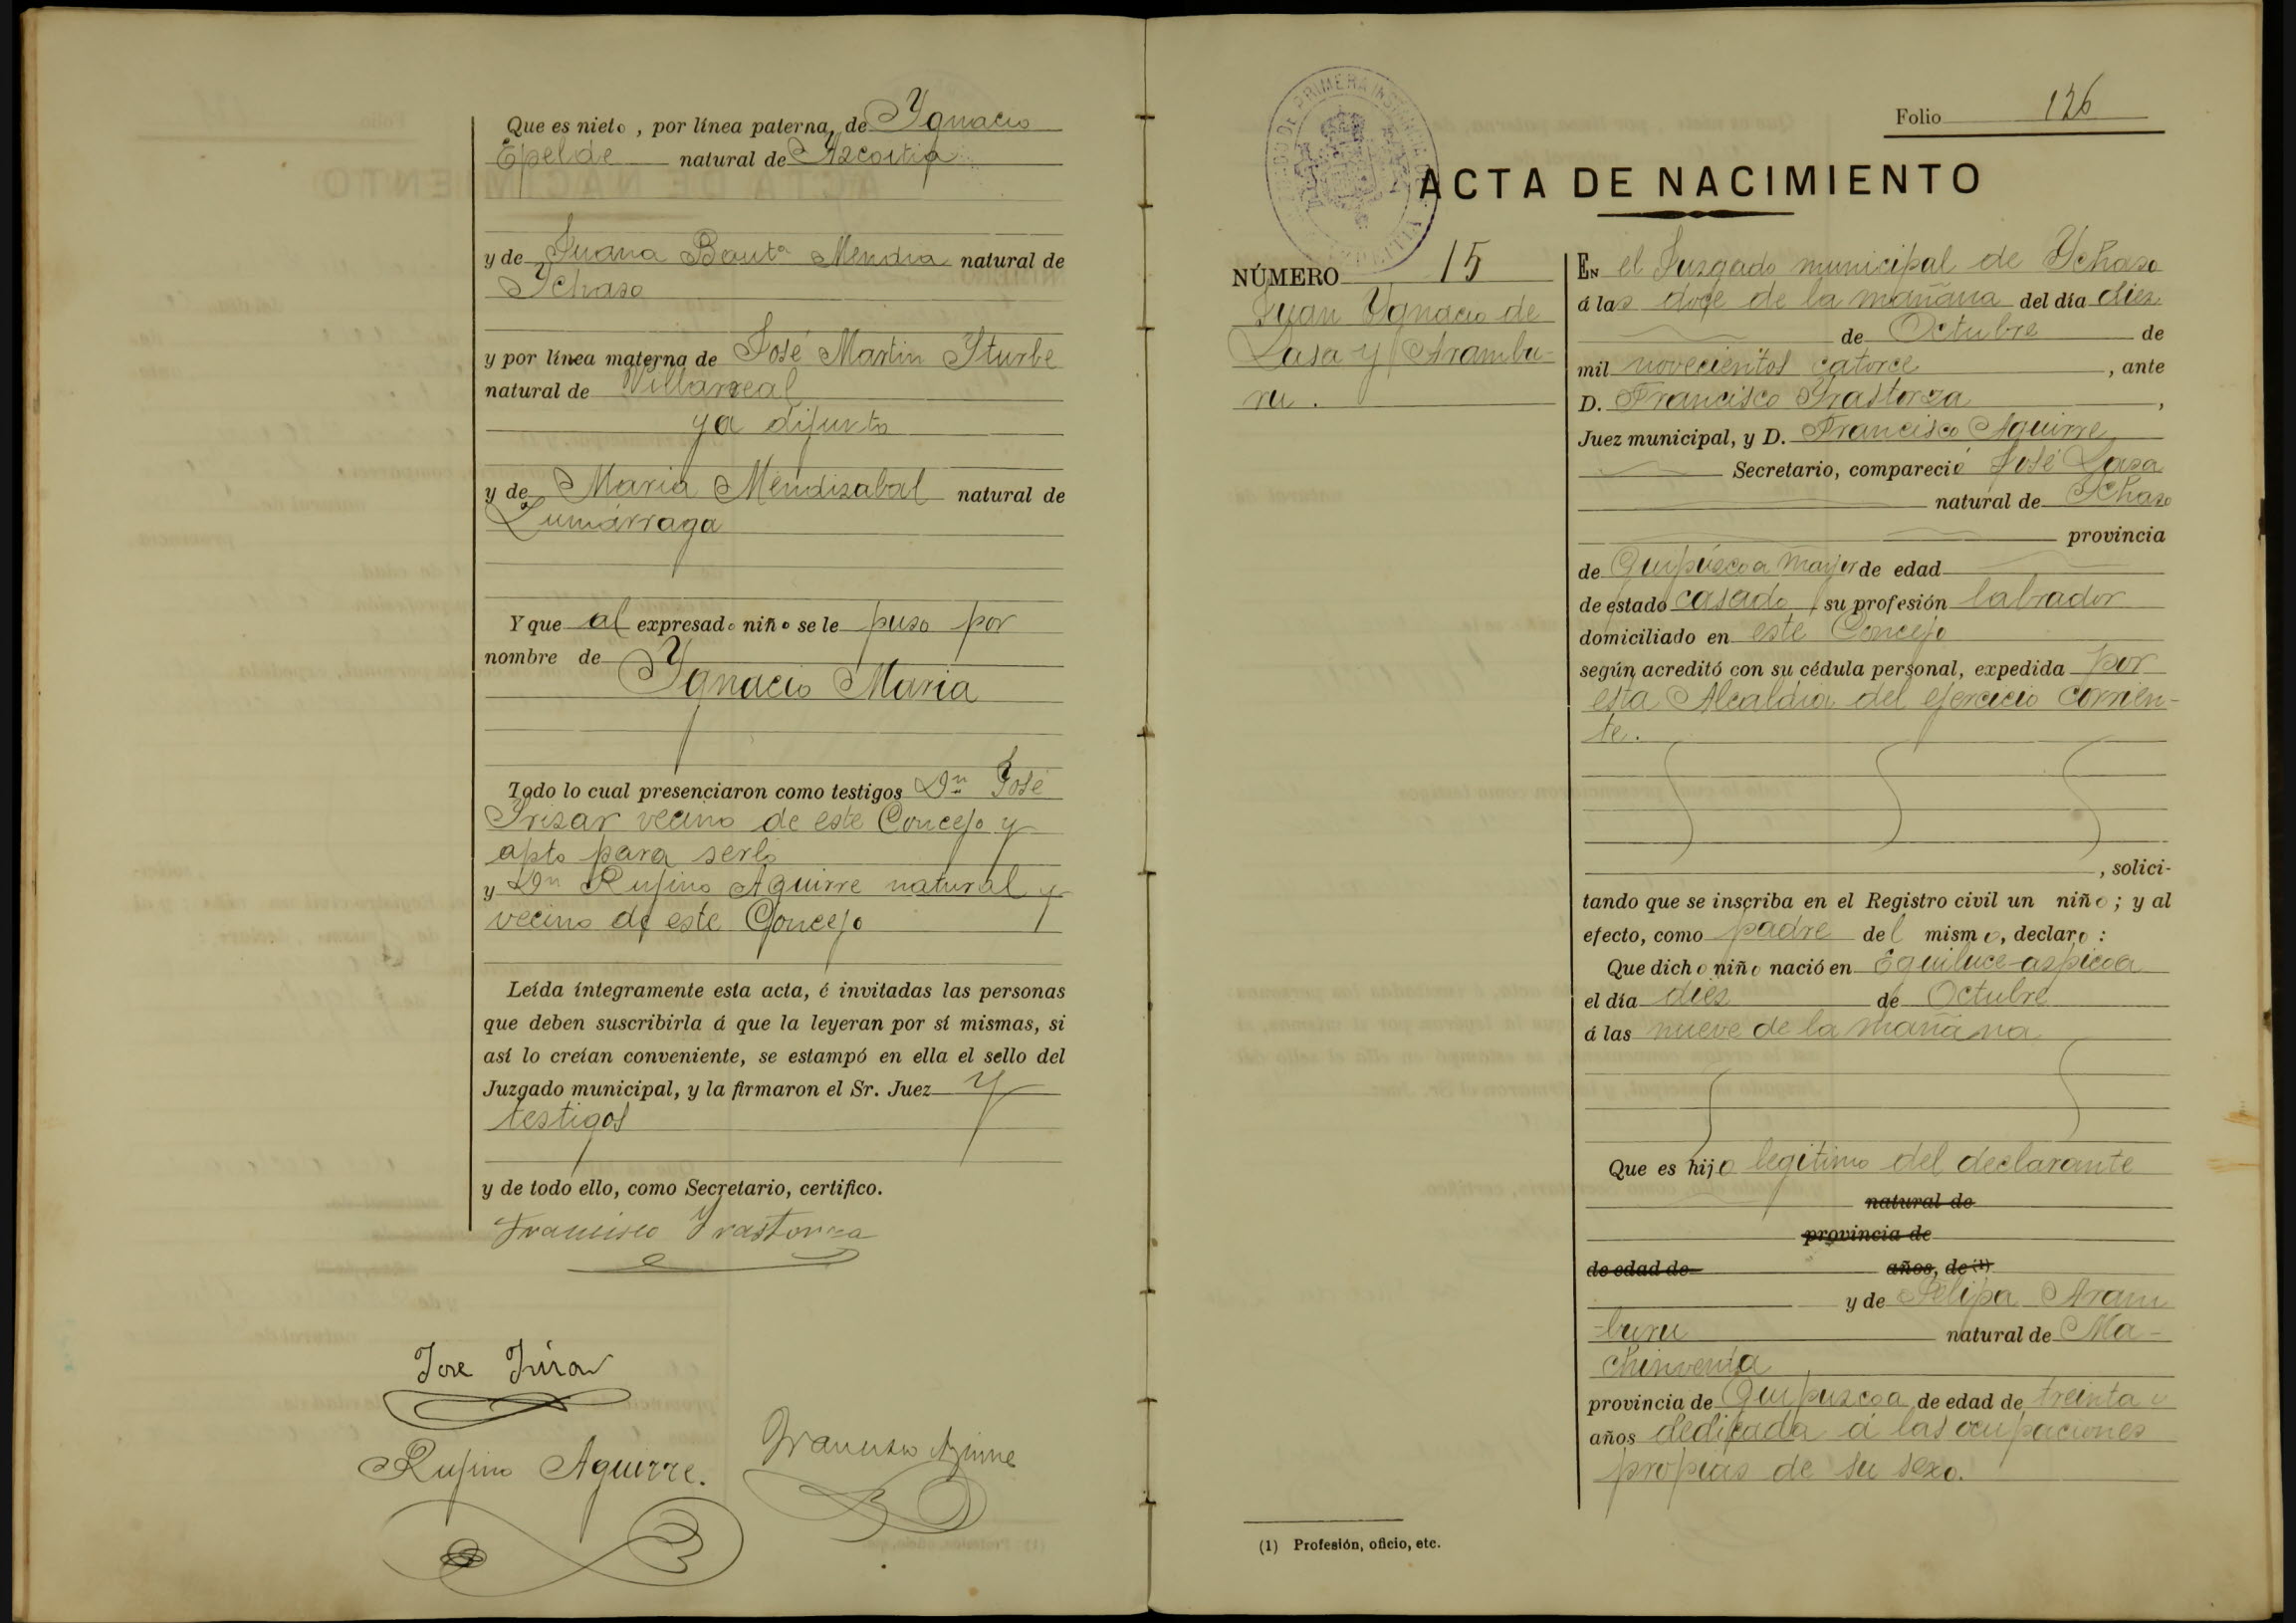 Que es nieto, por línea paterna, de Ygnacio
Epelde natural de Azcoitia
y de Juana Bautª Mendia natural de
Ychaso
y por línea materna de José Martin Yturbe
natural de Villarreal
ya difunto
y de Maria Mendizabal natural de
Zumárraga
Y que al expresado niño se le puso por
nombre de
Ygnacio Maria
Todo lo cual presenciaron como testigos Dn José
Irizar vecino de este Concejo y
apto para serlo
y Dn Rufino Aguirre natural y
vecino de este Concejo
Leída íntegramente esta acta, é invitadas las personas
que deben suscribirla á que la leyeran por sí mismas, si
así lo creían conveniente, se estampó en ella el sello del
Juzgado municipal, y la firmaron el Sr. Juez y
testigos
y de todo ello, como Secretario, certifico.
Francisco Yrastorza
Jose Irizar
Rufino Aguirre.
Francisco Aguirre
Folio 126
ACTA DE NACIMIENTO
NÚMERO 15
Juan Ygnacio de
Lasa y Arambu-
ru.
EN el Juzgado municipal de Ychaso
á las doce de la mañana del día diez
de Octubre de
mil novecientos catorce, ante
D. Francisco Yrastorza,
Juez municipal, y D. Francisco Aguirre
Secretario, compareció José Lasa
natural de Ychaso
provincia
de Guipúzcoa mayor de edad
de estado casado, su profesión labrador
domiciliado en este Concejo
según acreditó con su cédula personal, expedida por
esta Alcaldia del ejercicio corrien-
te.
, solici-
tando que se inscriba en el Registro civil un niño; y al
efecto, como padre del mismo, declaro:
Que dicho niño nació en Eguiluce-aspicoa
el día diez de Octubre
á las nueve de la mañana
Que es hijo legítimo del declarante
natural de
provincia de
de edad de años, de (1)
y de Felipa Aram
-buru natural de Ma-
chinventa
provincia de Guipuzcoa de edad de treinta
años dedicada á las ocupaciones
propias de su sexo.
(1) Profesión, oficio, etc.